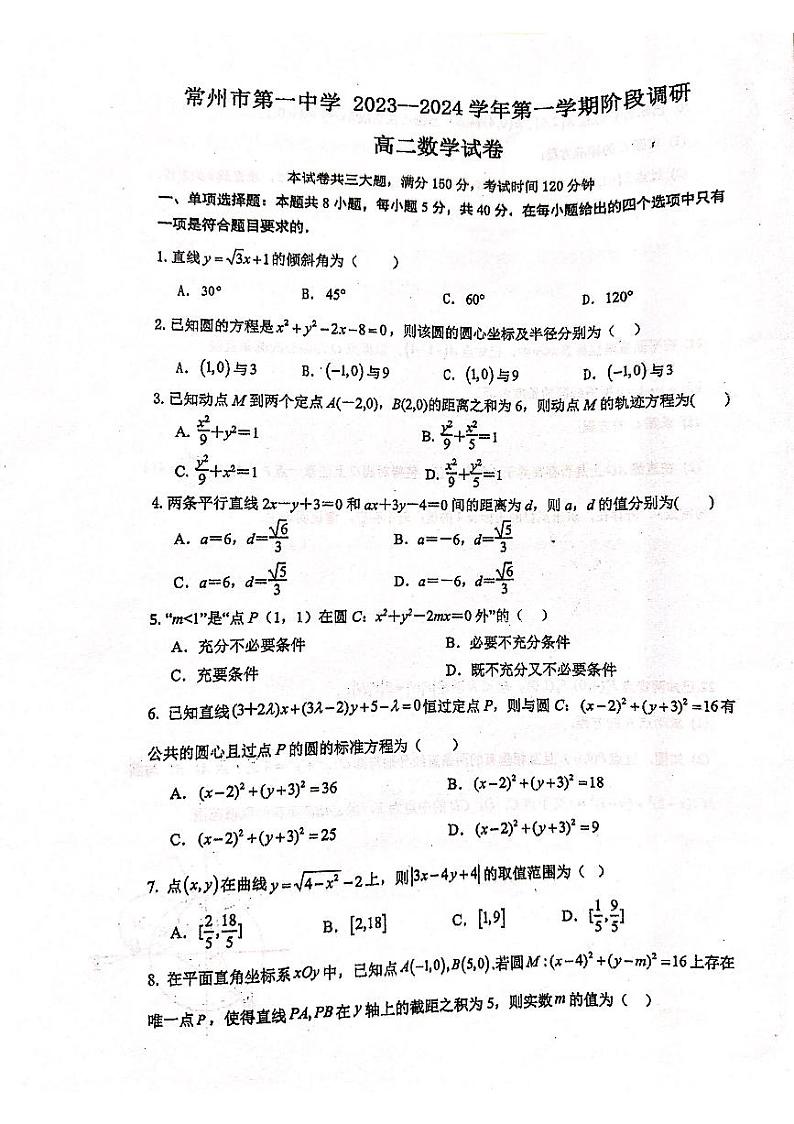 常州市第一中学 2023--2024 学年第一学期阶段调研
高二数学试卷
本试卷共三大题，满分 150 分，考试时间 120 分钟
一、单项选择题：本题共 8 小题，每小题 5 分，共 40 分．在每小题给出的四个选项中只有
一项是符合题目要求的．
1. 直线 y=√3x+1 的倾斜角为（ ）
A. 30° B. 45° C. 60° D. 120°
2. 已知圆的方程是 x²+y²-2x-8=0，则该圆的圆心坐标及半径分别为（ ）
A. (1,0)与3 B. (-1,0)与9 C. (1,0)与9 D. (-1,0)与3
3. 已知动点 M 到两个定点 A(-2,0)，B(2,0)的距离之和为 6，则动点 M 的轨迹方程为( )
A. x²/9+y²=1 B. y²/9+x²/5=1
C. y²/9+x²=1 D. x²/9+y²/5=1
4. 两条平行直线 2x-y+3=0 和 ax+3y-4=0 间的距离为 d，则 a，d 的值分别为( )
A. a=6，d=√6/3 B. a=-6，d=√5/3
C. a=6，d=√5/3 D. a=-6，d=√6/3
5. “m<1”是“点 P（1，1）在圆 C：x²+y²-2mx=0 外”的（ ）
A. 充分不必要条件 B. 必要不充分条件
C. 充要条件 D. 既不充分又不必要条件
6. 已知直线 (3+2λ)x+(3λ-2)y+5-λ=0 恒过定点 P，则与圆 C：(x-2)²+(y+3)²=16 有
公共的圆心且过点 P 的圆的标准方程为（ ）
A. (x-2)²+(y+3)²=36 B. (x-2)²+(y+3)²=18
C. (x-2)²+(y+3)²=25 D. (x-2)²+(y+3)²=9
7. 点 (x,y) 在曲线 y=√(4-x²)-2 上，则|3x-4y+4| 的取值范围为（ ）
A. [2/5,18/5] B. [2,18] C. [1,9] D. [1/5,9/5]
8. 在平面直角坐标系 xOy 中，已知点 A(-1,0),B(5,0).若圆 M:(x-4)²+(y-m)²=16 上存在
唯一点 P，使得直线 PA,PB 在 y 轴上的截距之积为 5，则实数 m 的值为（ ）